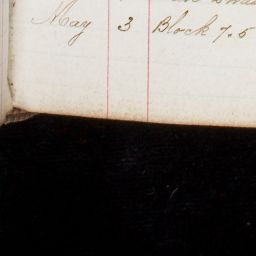 May 3 Block 7.5